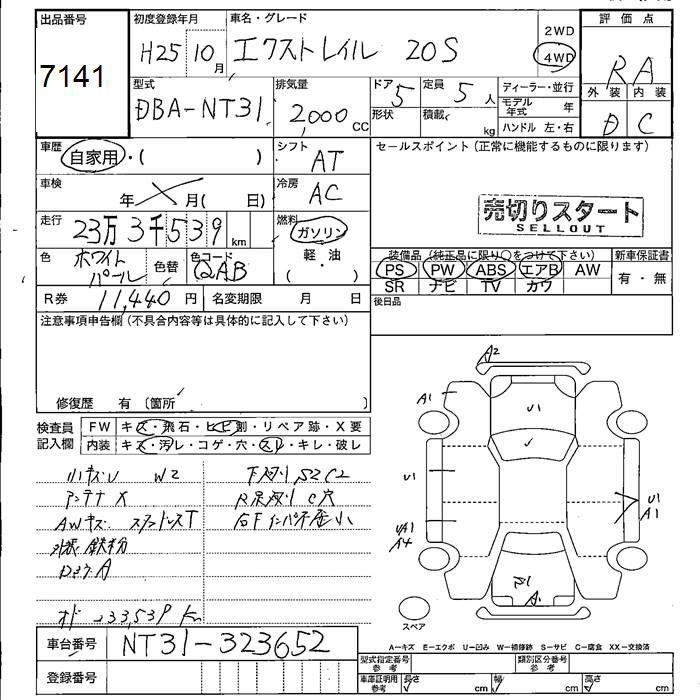 出品番号 初度登録年月 車名・グレード 評価点
7141 H25 10月 エクストレイル 20S 2WD 4WD RA
型式 排気量 ドア 5 定員 5人 ディーラー・並行 外装 内装
DBA-NT31 2,000cc 形状 積載 kg モデル年式 年 D C
ハンドル 左・右
車歴 自家用・( ) シフト AT セールスポイント(正常に機能するものに限ります)
車検 年 月( 日) 冷房 AC
売切りスタート
SELLOUT
走行 23万3千539km 燃料 ガソリン
軽・油
( )
色 ホワイトパール 色替 色コード QAB
装備品(純正品に限り○をつけて下さい) 新車保証書
PS PW ABS エアB AW 有・無
SR ナビ TV カワ
R券 11,440円 名変期限 月 日 後日品
注意事項申告欄(不具合内容等は具体的に記入して下さい)
修復歴 有〔箇所 〕
検査員記入欄 FW キズ・飛石・ヒビ割・リペア跡・X要
内装 キズ・汚レ・コゲ・穴・スレ・キレ・破レ
小キズU W2
アンテナX
AWキズ
外装鉄粉
オド 233,539Km
下廻り S2C2
C穴
A2
A1
U1
U1
U1
A1
スペア
A－キズ E－エクボ U－凹み W－補修跡 S－サビ C－腐食 XX－交換済
車台番号 NT31-323652
登録番号
型式指定番号 参考 類別区分番号 参考
車庫証明用 参考 長さ cm 幅 cm 高さ cm